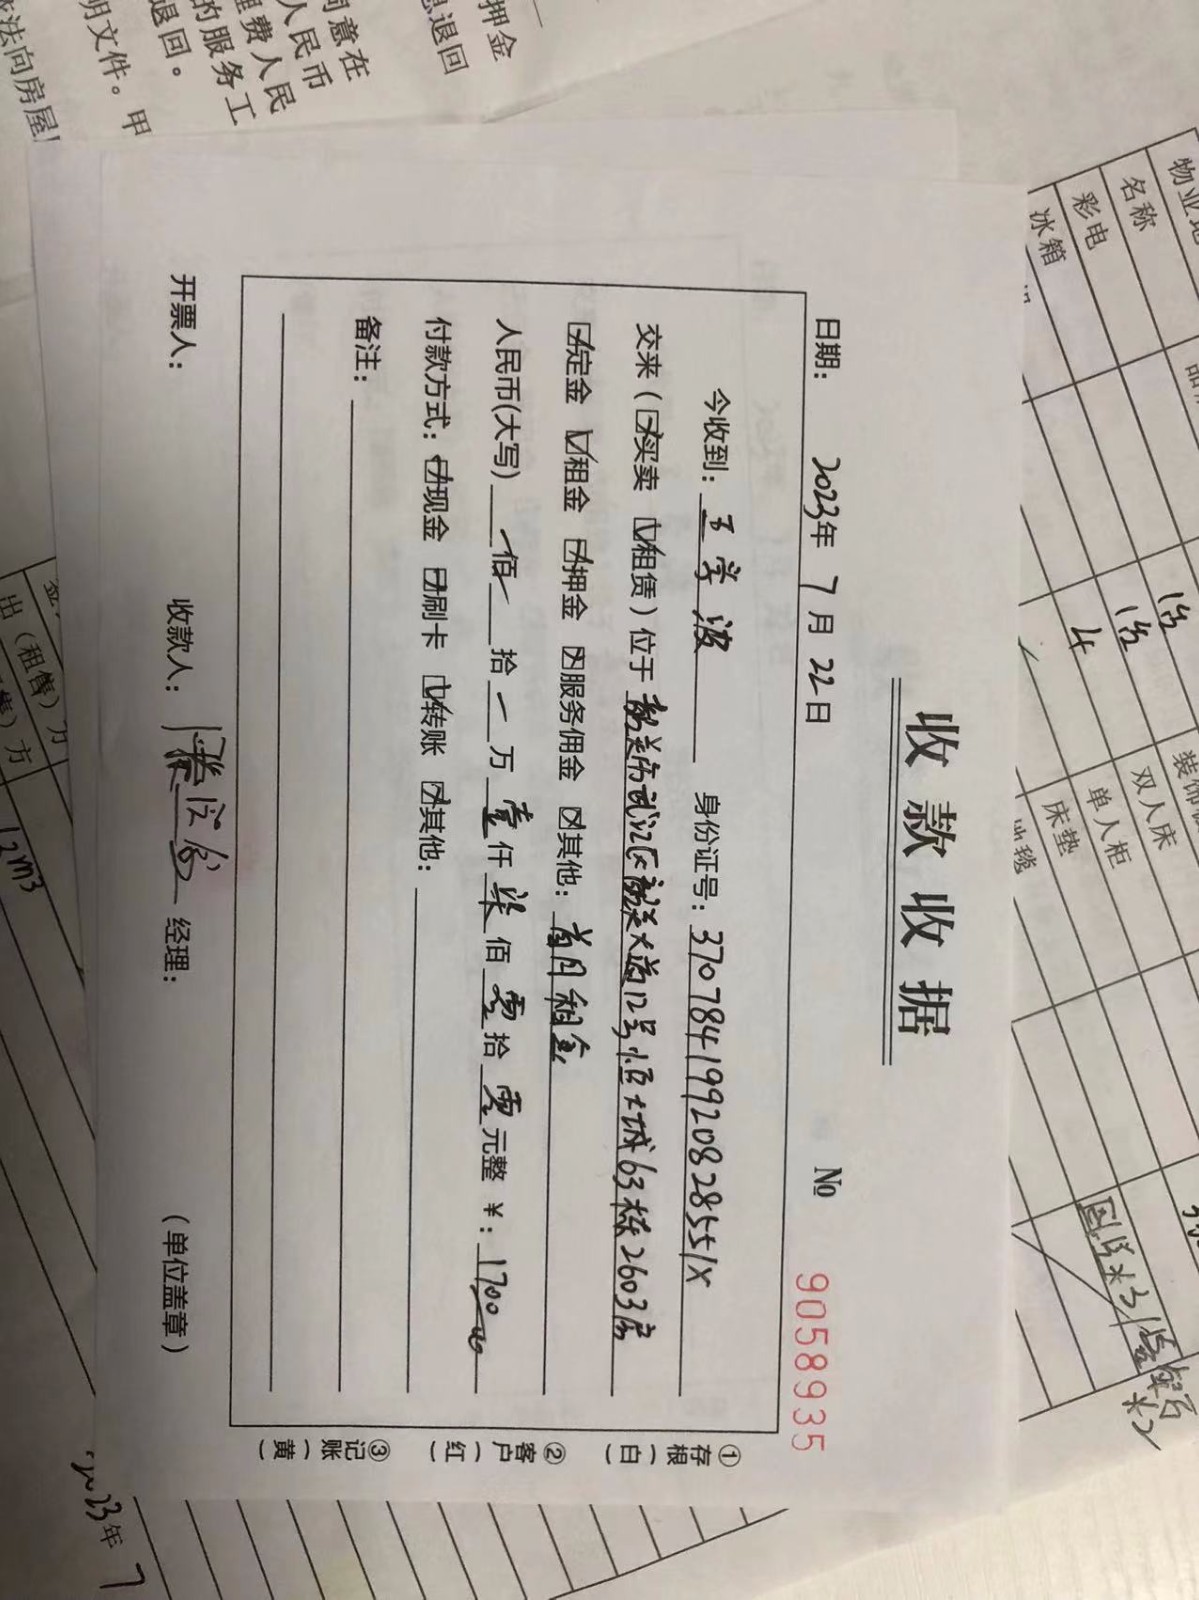 收款收据
日期： 2023年 7月 22日 № 9058935
今收到： 王学波 身份证号： 37078419920828551X
交来（☑买卖 ☑租赁）位于 韶关市武江区韶关大道12号恒大城63栋2603房
☑定金 ☑租金 ☑押金 ☒服务佣金 ☒其他： 首月租金
人民币(大写) 佰 拾 万 壹 仟 柒 佰 零 拾 零 元整 ¥： 1700
付款方式：☑现金 ☑刷卡 ☑转账 ☑其他：
备注：
开票人： 收款人： 经理： （单位盖章）
①存根（白）
②客户（红）
③记账（黄）
押金
息退回
同意在
人民币
理费人民
的服务工
退回。
明文件。甲
法向房屋
名称
彩电
冰箱
4
双人床
单人柜
床垫
地毯
出（租售）方
12m3
2023年 7